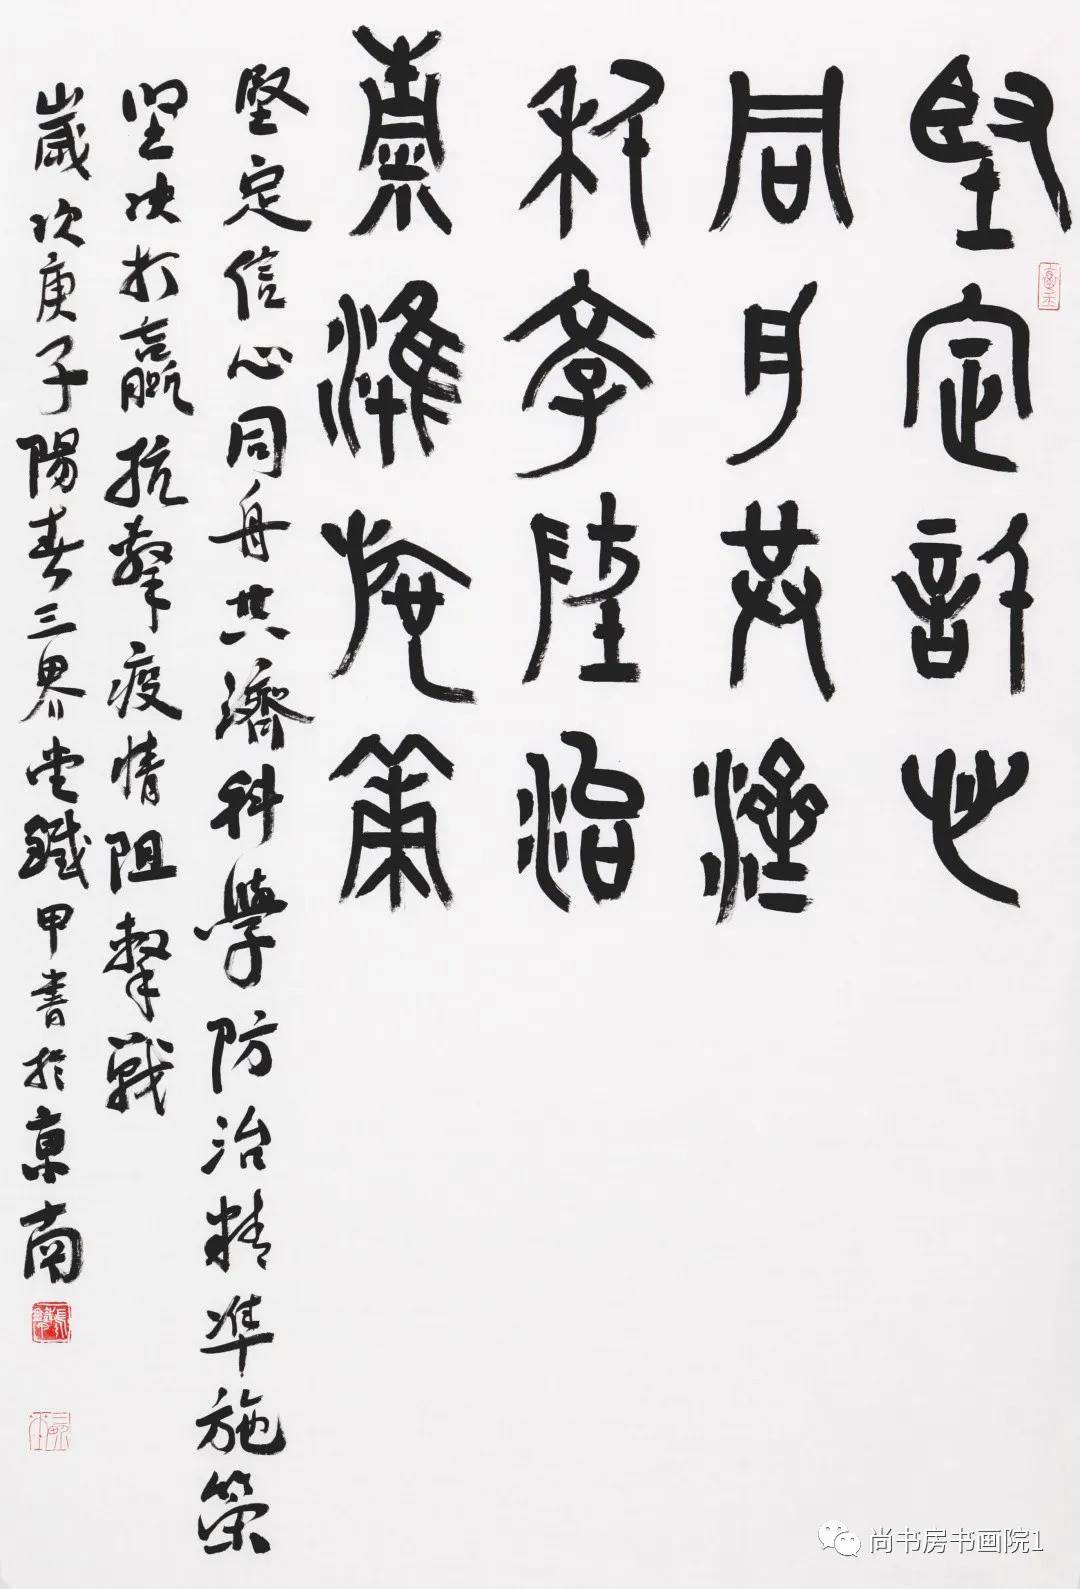 堅定信心
同舟共濟
科學防治
精準施策
堅定信心同舟共濟科學防治精準施策
坚决打贏抗擊疫情阻擊戰
歲次庚子陽春三界堂鐵甲書於京南
尚书房书画院1